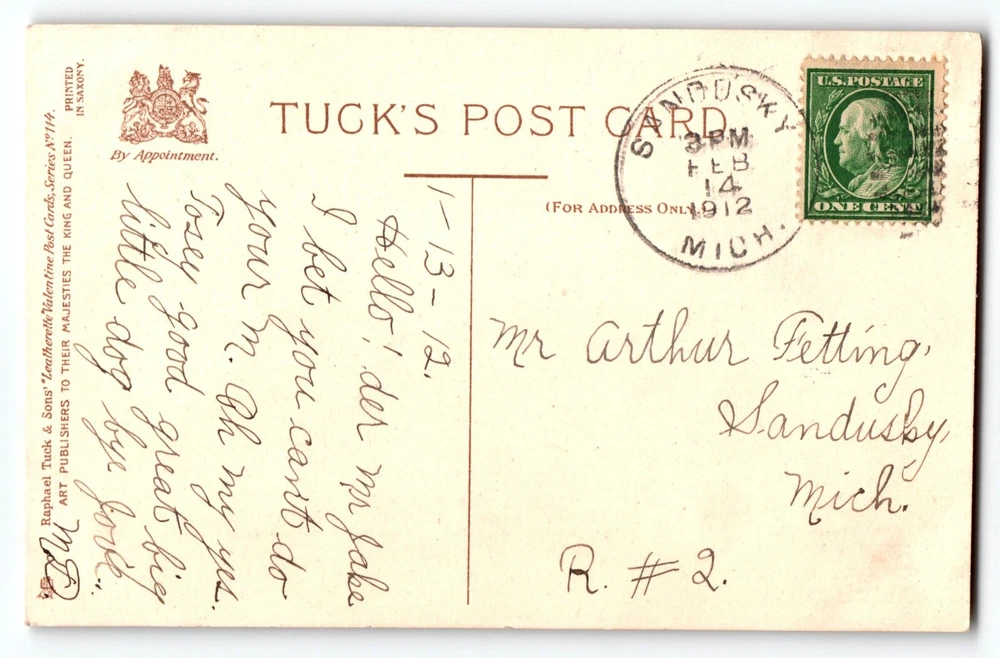 TUCK'S POST CARD
By Appointment.
(FOR ADDRESS ONLY
Raphael Tuck & Sons' "Leatherette" Valentine Post Cards, Series Nº 114.
ART PUBLISHERS TO THEIR MAJESTIES THE KING AND QUEEN.
PRINTED
IN SAXONY.
SANDUSKY
3 PM
FEB
14
1912
MICH.
U.S. POSTAGE
ONE CENT
1-13-12.
Hello! der mr Jake
I bet you can't do
your m. Oh my yes.
good great big
little dog bye
Mr Arthur Fetting,
Sandusky,
Mich.
R. #2.